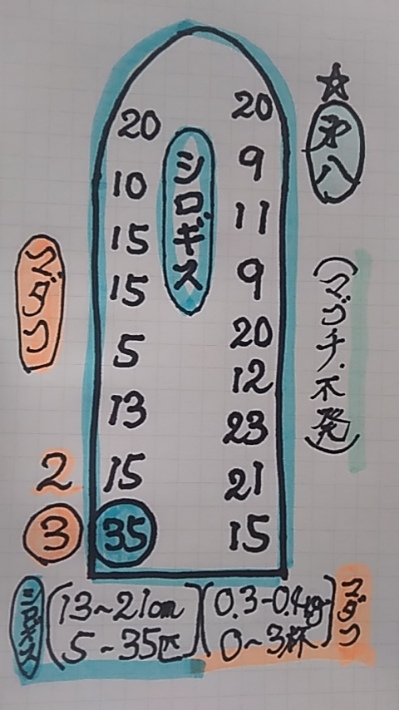 ☆
第八
20 20
シロギス
10 9
15 11
15 9
マダコ
5 20
13 12
2 15 23
3 35 21
15
(マゴチ不発)
シロギス
(13~21cm
5~35匹)
(0.3-0.4kg
0~3杯)
マダコ